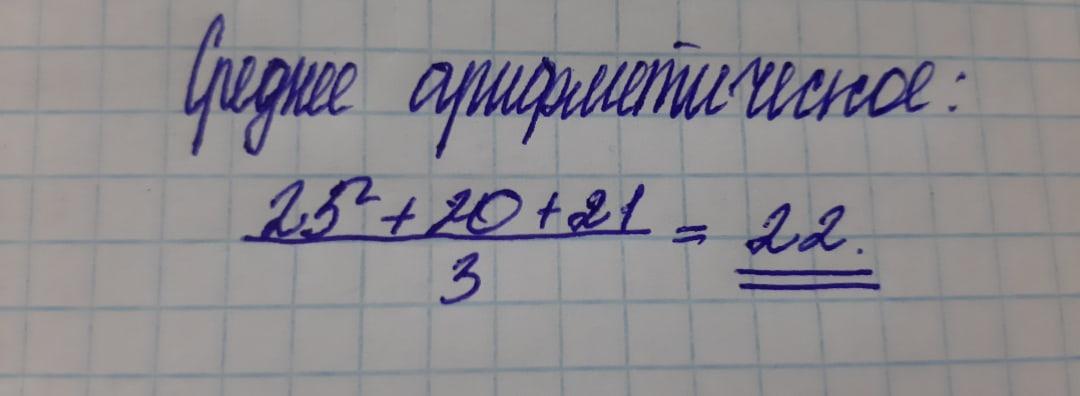 Среднее арифметическое:
25 + 20 + 21
3
= 22.